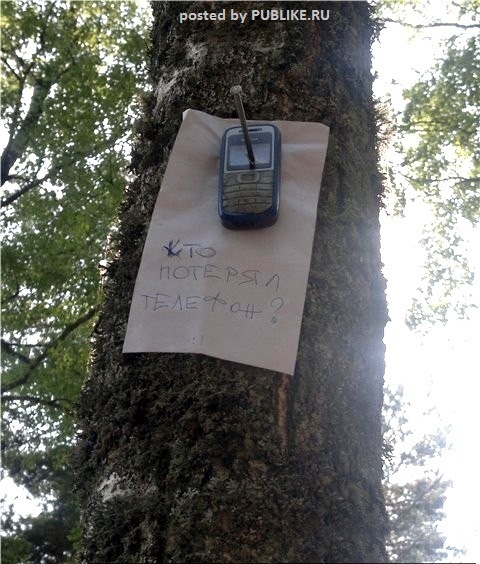 posted by PUBLIKE.RU
КТО
ПОТЕРЯЛ
ТЕЛЕФОН?
:)